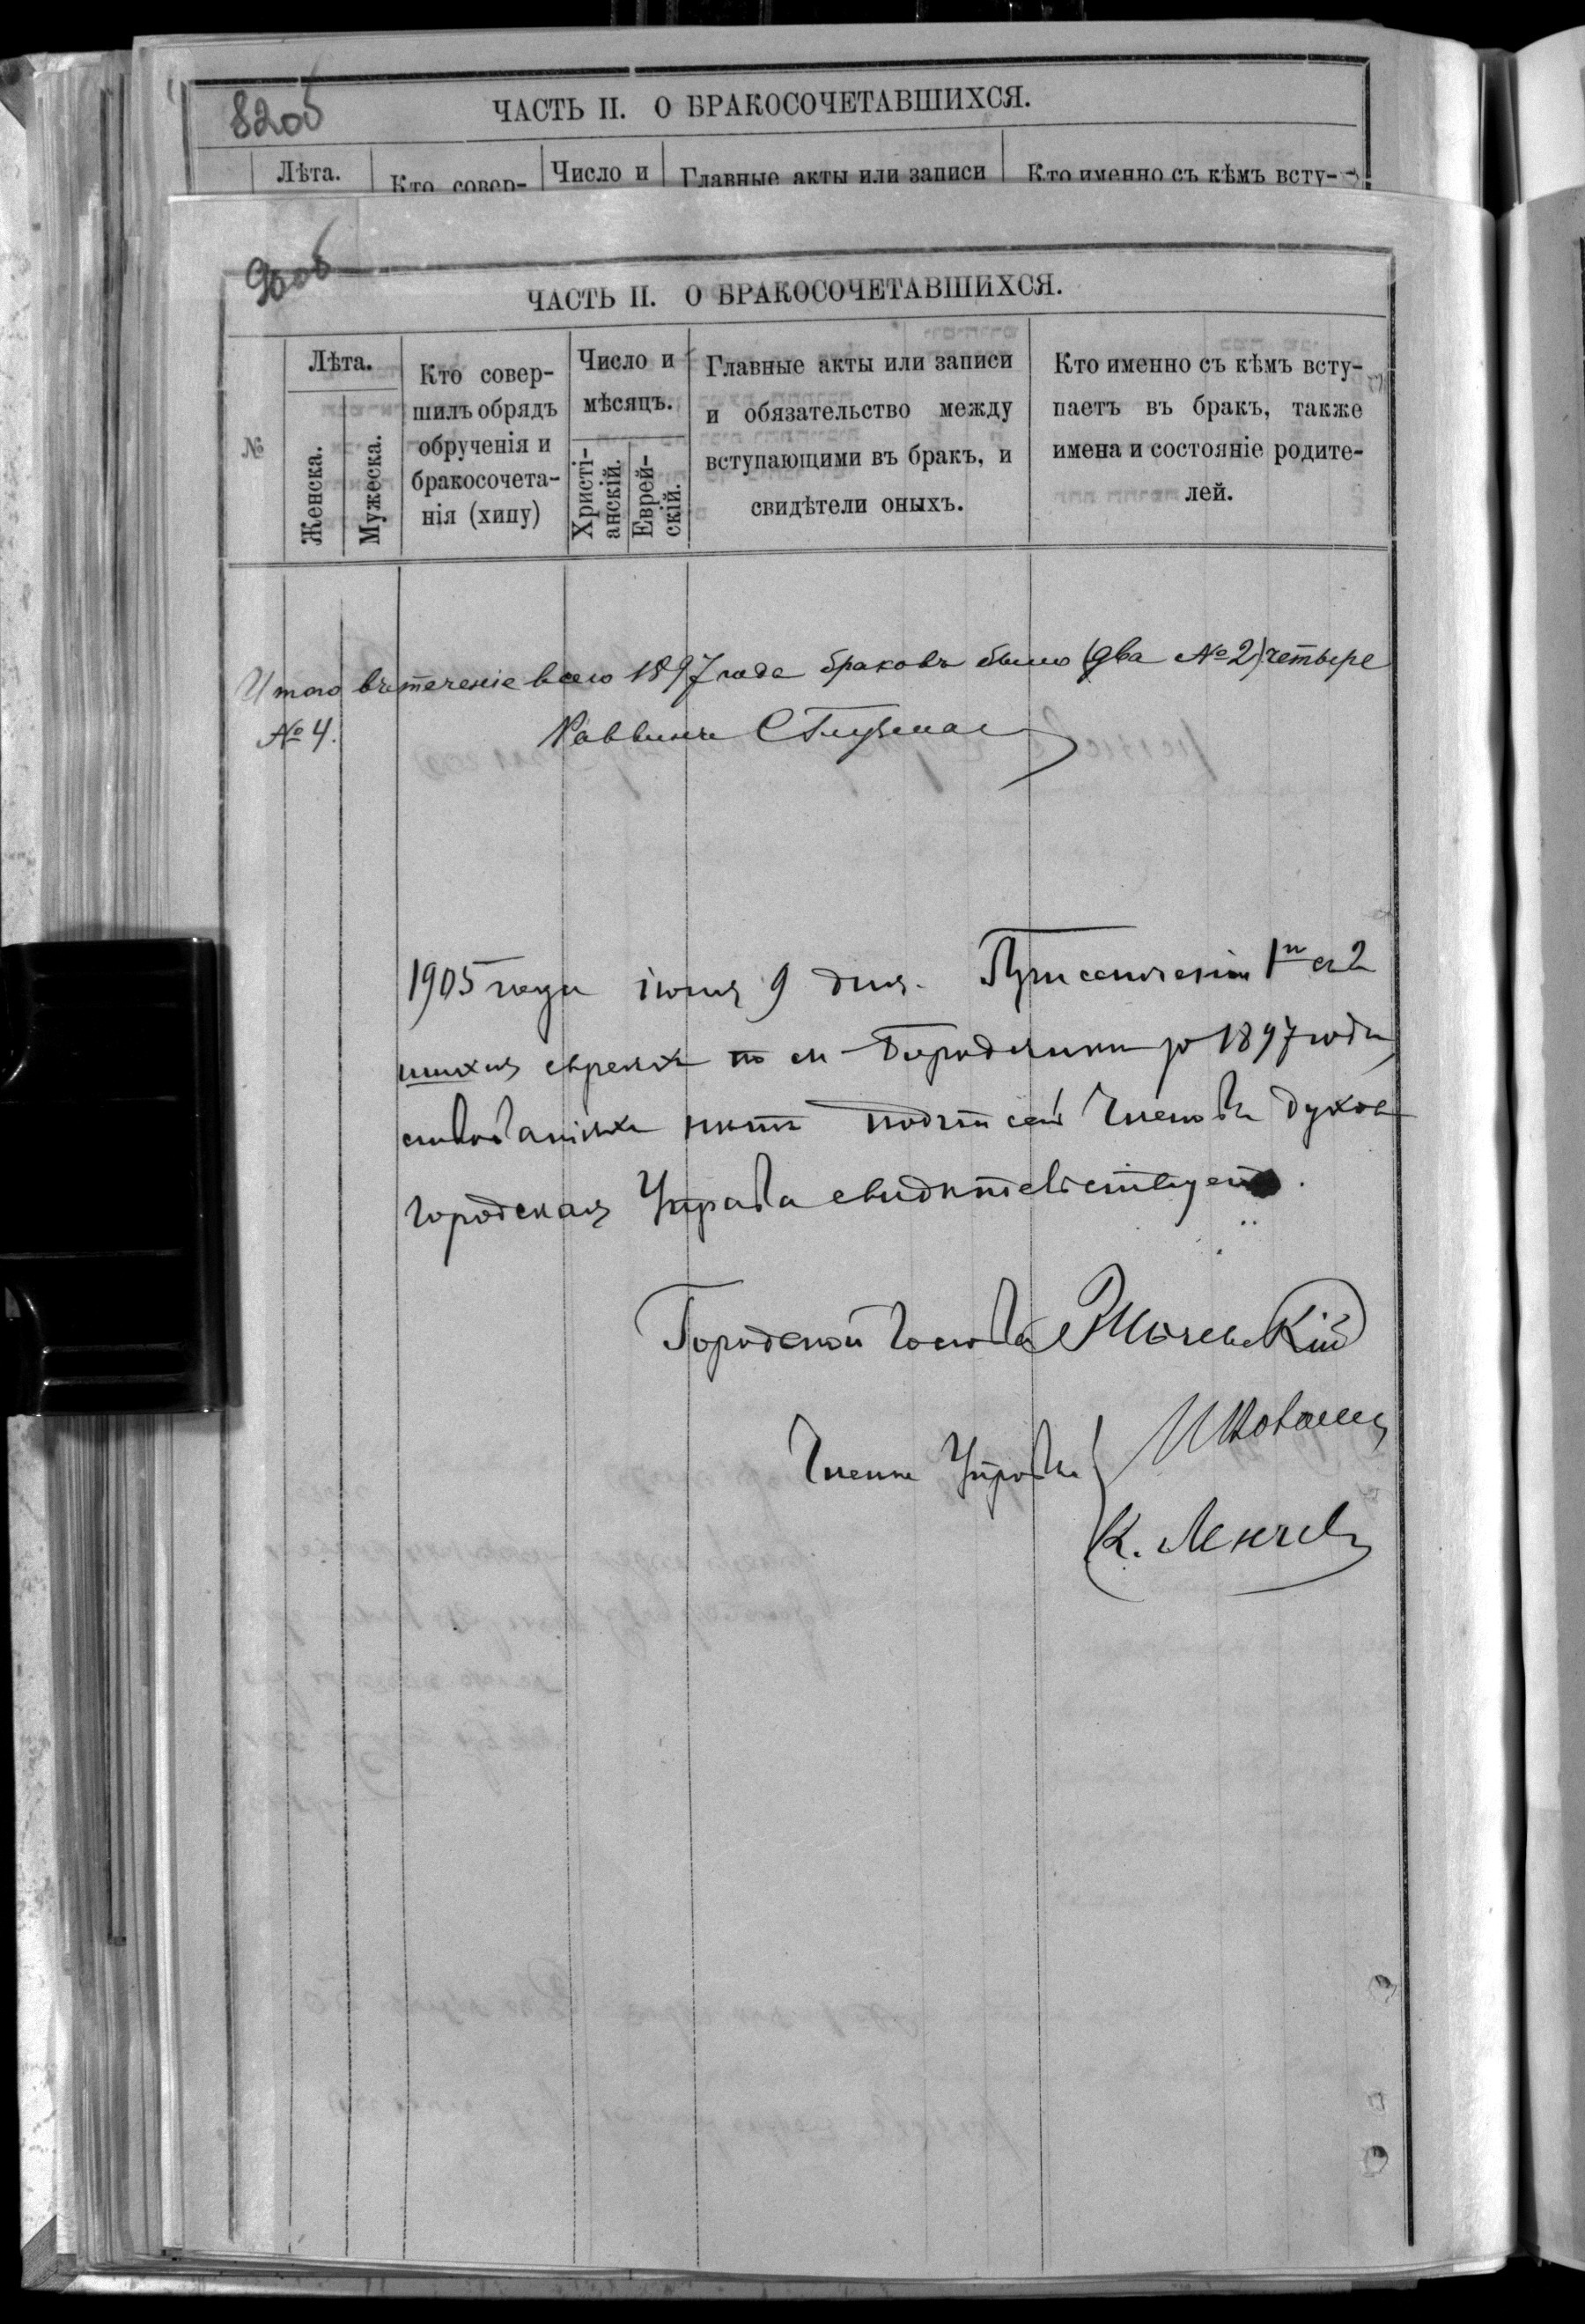 82об
ЧАСТЬ II. О БРАКОСОЧЕТАВШИХСЯ.
Лѣта.
Кто совер-
Число и
Главные акты или записи
Кто именно съ кѣмъ всту-
90об
ЧАСТЬ II. О БРАКОСОЧЕТАВШИХСЯ.
№
Лѣта.
Женска.
Мужеска.
Кто совер-
шилъ обрядъ
обрученія и
бракосочета-
нія (хипу)
Число и
мѣсяцъ.
Христі-
анскій.
Еврей-
скій.
Главные акты или записи
и обязательство между
вступающими въ бракъ, и
свидѣтели оныхъ.
Кто именно съ кѣмъ всту-
паетъ въ бракъ, также
имена и состояніе родите-
лей.
Итого въ теченіе всего 1897 года браковъ было (два №2) четыре
№ 4.
Раввинъ
1905 года іюня 9 дня.
шихся евреяхъ по 1897 годъ
нѣтъ подписей Членовъ Духов
городская Управа свидѣтельствуетъ.
Городской Голова
Члены Управы
К.